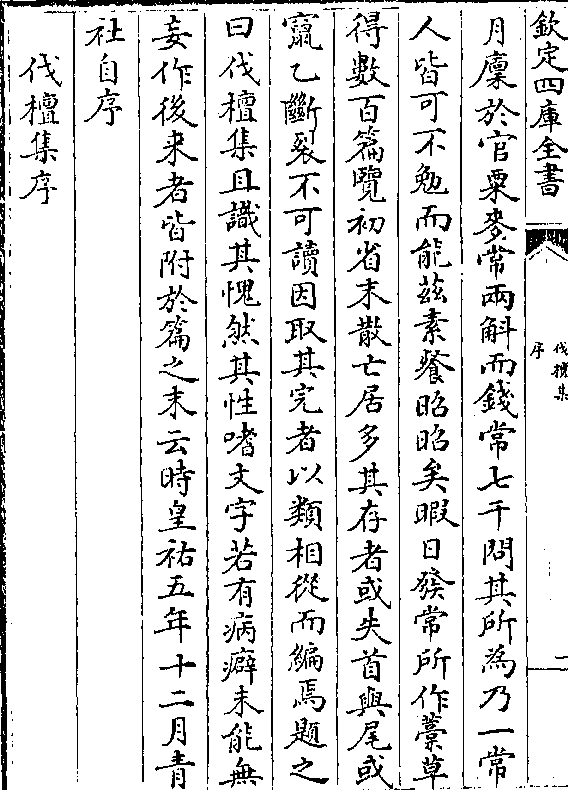 欽定四庫全書
伐檀集
序
二
月廩於官粟麥常兩斛而錢常七千問其所為乃一常
人皆可不勉而能茲素餐昭昭矣暇日發常所作藁草
得數百篇覽初省末散亡居多其存者或失首與尾或
竄乙斷裂不可讀因取其完者以類相從而編焉題之
曰伐檀集且識其愧然其性嗜文字若有病癖未能無
妄作後来者皆附於篇之末云時皇祐五年十二月青
社自序
伐檀集序